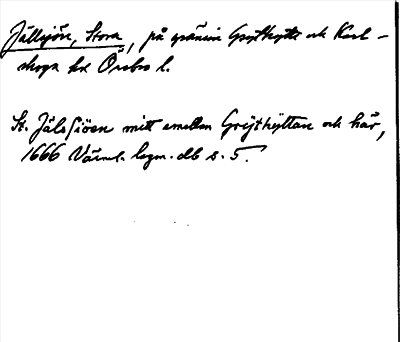 Jällsjön, Stora, på gränsen Grythytte och Karl-
skoga hd Örebro l.
St. Jälsjöen mitt emellan Grijthyttan och här,
1666 Värml. lagm. db s. 5.